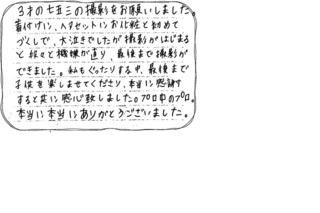 3才の七五三の撮影をお願いしました。
着付けに、ヘアセットにお化粧と初めて
づくしで、大泣きでしたが撮影がはじまる
と段々と機嫌が直り、最後まで撮影が
できました。私もぐったりする中、最後まで
子供を楽しませてくださり、本当に感謝
すると共に感心致しました。プロ中のプロ。
本当に本当にありがとうございました。